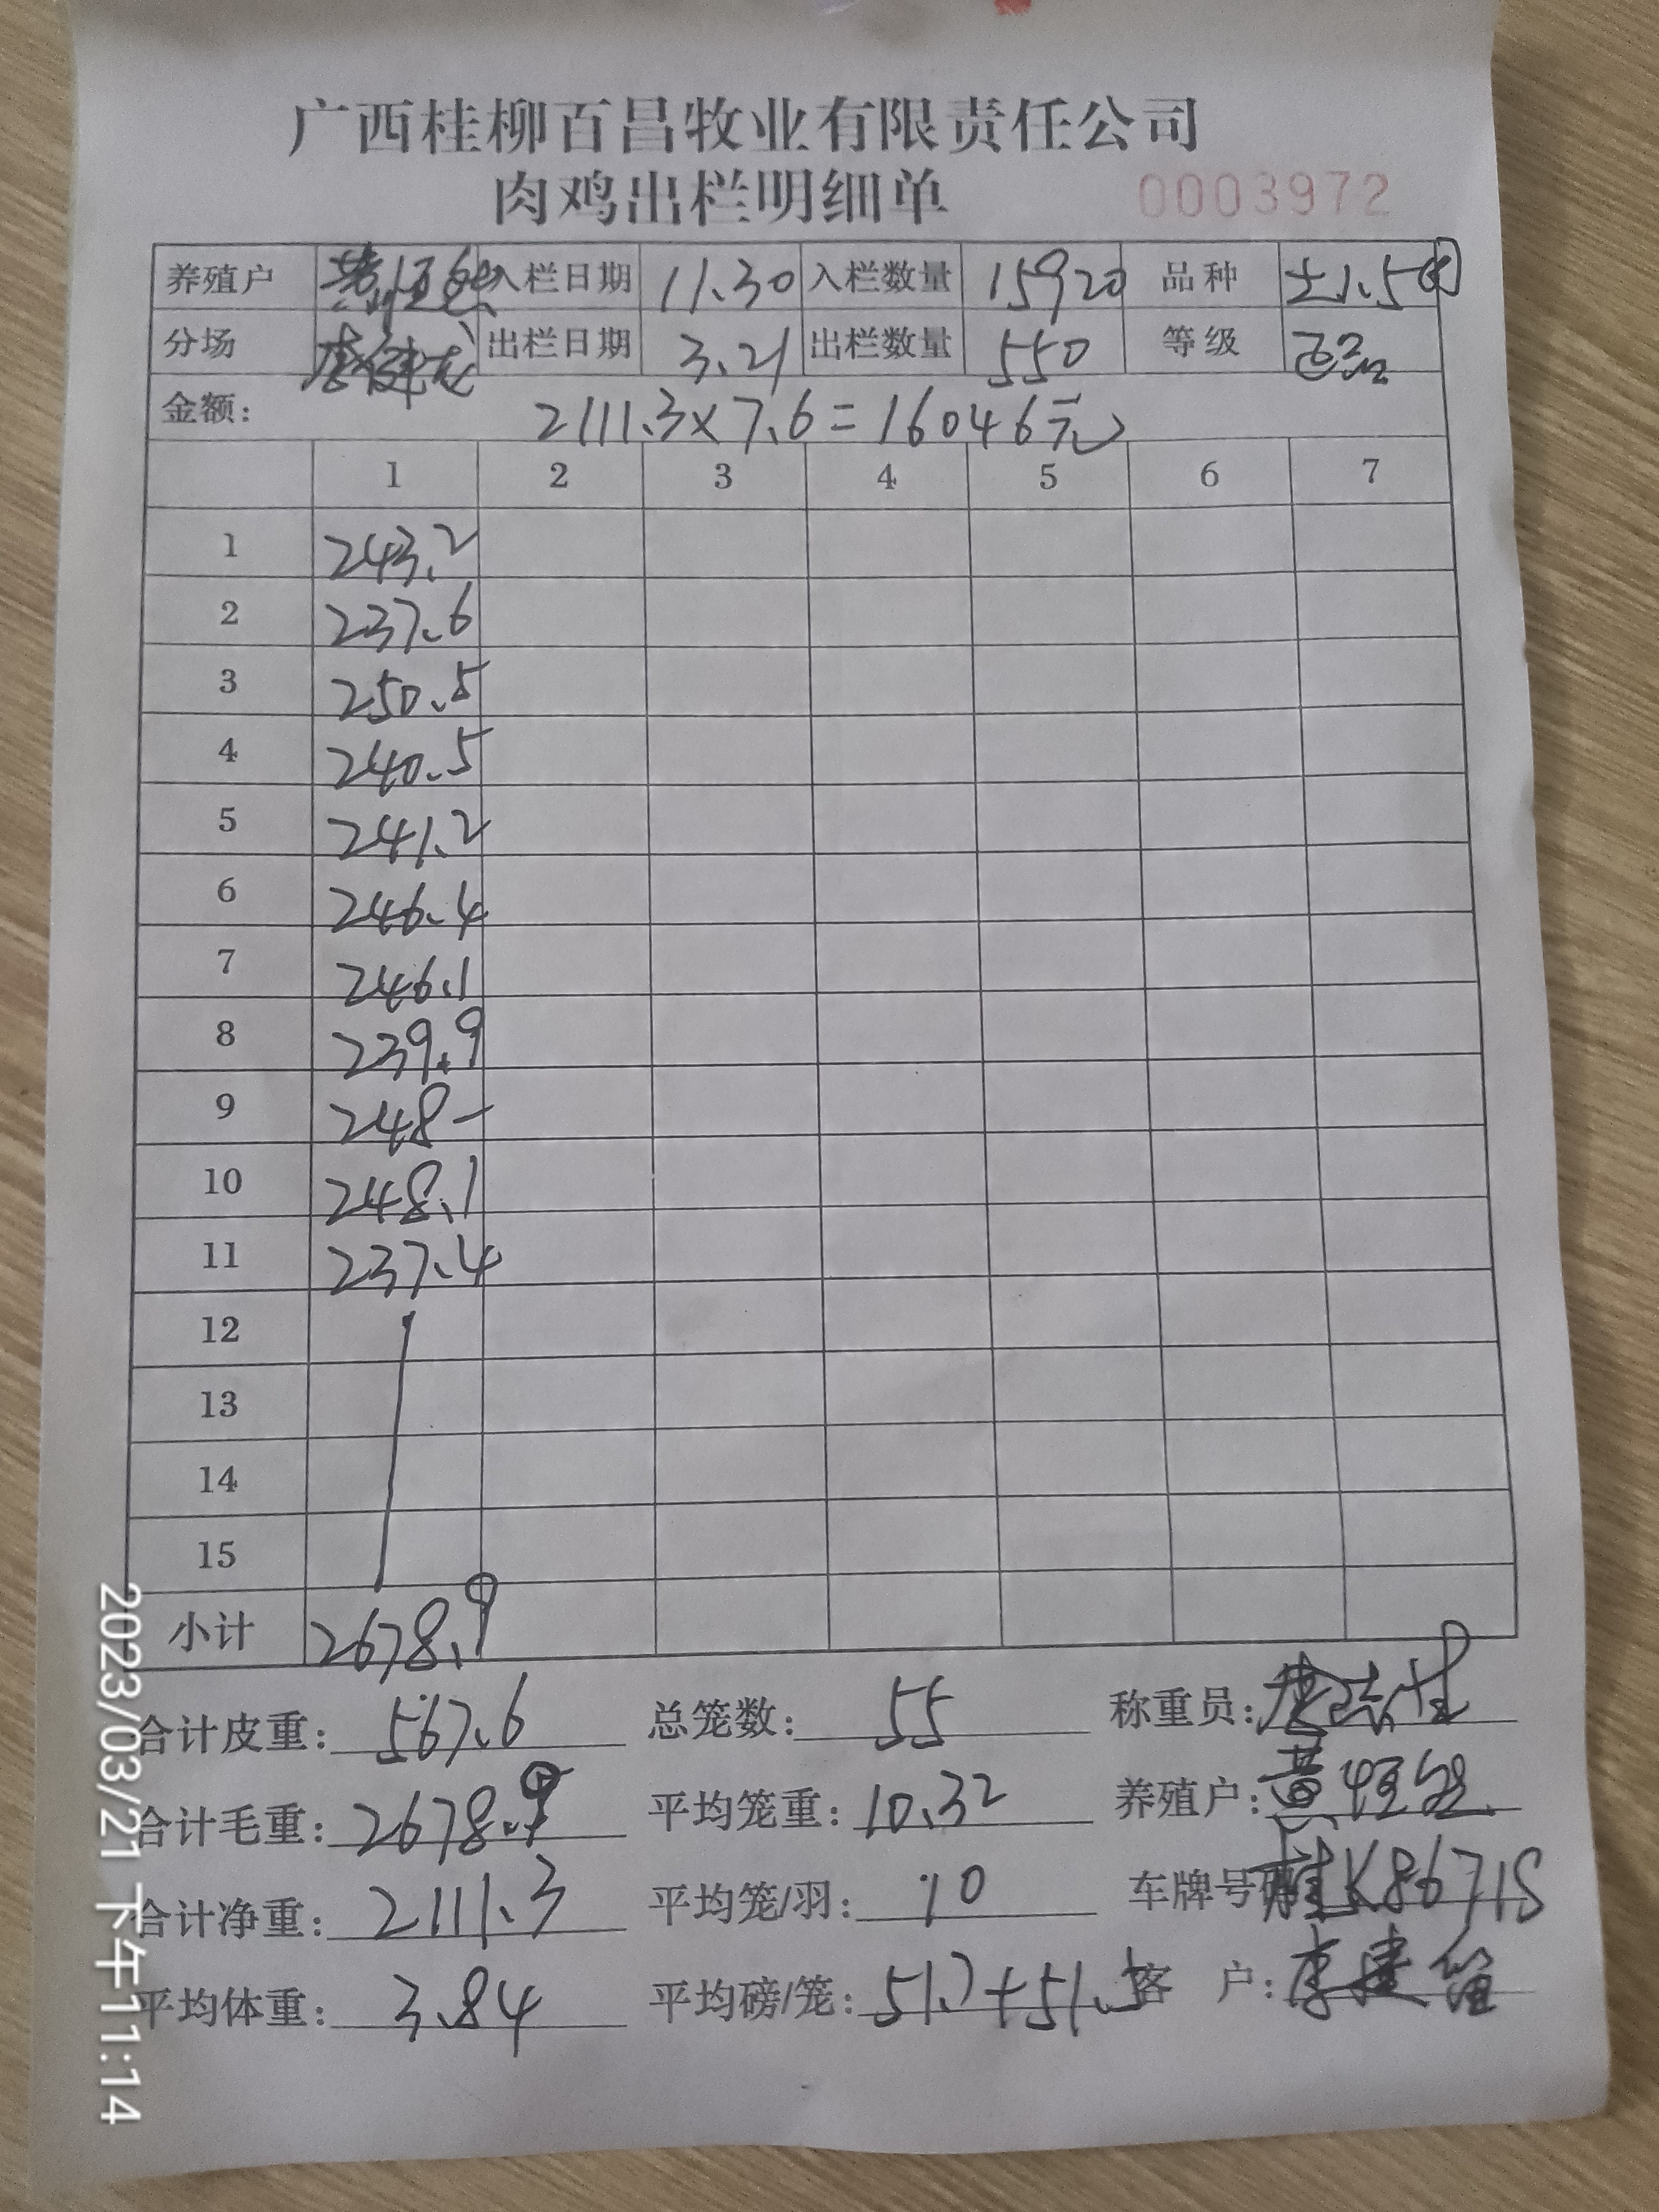 广西桂柳百昌牧业有限责任公司
肉鸡出栏明细单 0003972
养殖户 入栏日期 11.30 入栏数量 15920 品种 土1.5
分场 出栏日期 3.21 出栏数量 550 等级
金额: 2111.3×7.6=16046元
1 2 3 4 5 6 7
1 243.2
2 237.6
3 250.5
4 240.5
5 241.2
6 246.4
7 246.1
8 239.9
9 248-
10 248.1
11 237.4
12
13
14
15
小计 2678.9
合计皮重: 567.6 总笼数: 55 称重员:
合计毛重: 2678.9 平均笼重: 10.32 养殖户: 黄恒
合计净重: 2111.3 平均笼/羽: 10 车牌号码 桂K86715
平均体重: 3.84 平均磅/笼: 51.7+51.5 客 户: 李建
2023/03/21 下午11:14